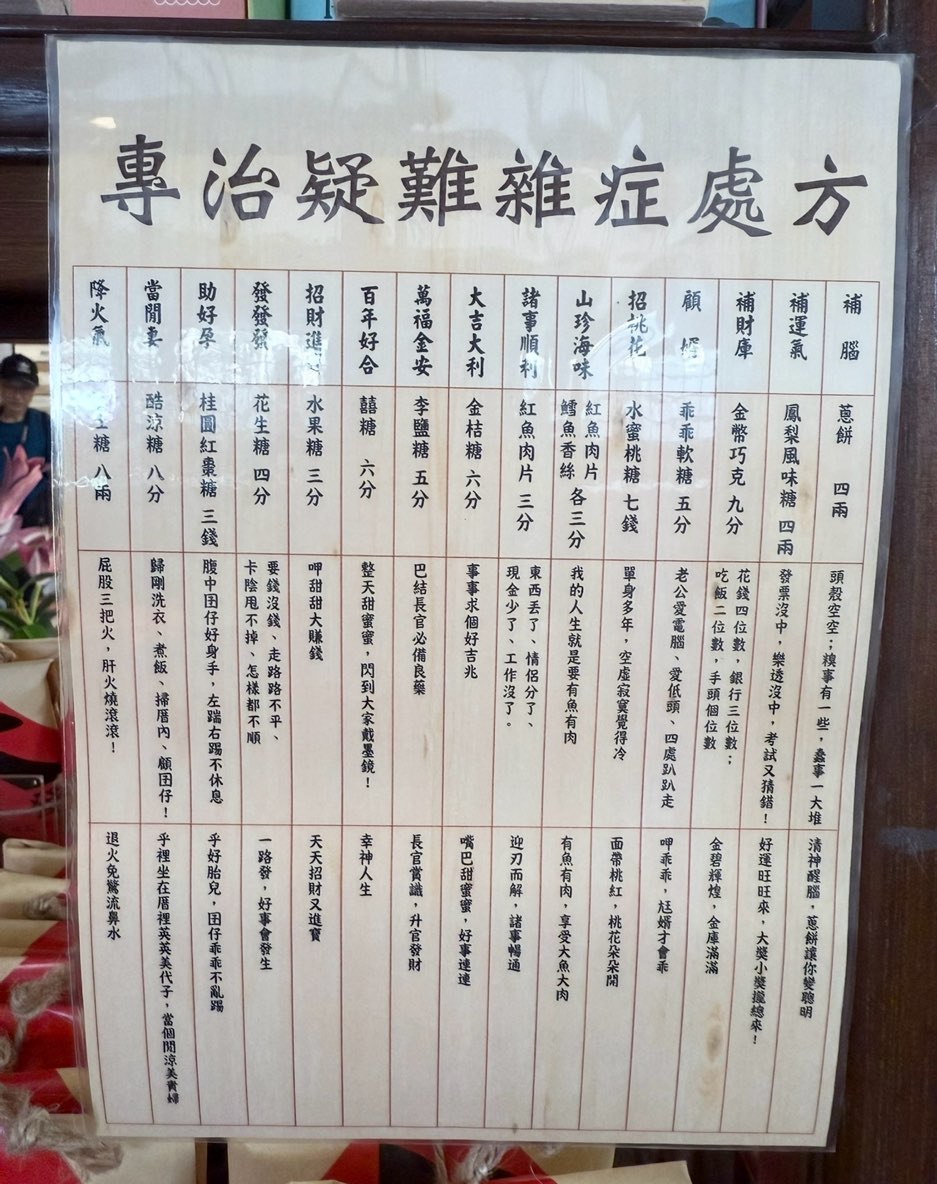 專治疑難雜症處方
補腦
蔥餅 四兩
頭殼空空；糗事有一些，蠢事一大堆
清神醒腦，蔥餅讓你變聰明
補運氣
鳳梨風味糖 四兩
發票沒中，樂透沒中，考試又猜錯！
好運旺旺來，大獎小獎攏總來！
補財庫
金幣巧克 九分
花錢四位數，銀行三位數；
吃飯二位數，手頭個位數
金碧輝煌，金庫滿滿
顧婿
乖乖軟糖 五分
老公愛電腦、愛低頭、四處趴趴走
呷乖乖，尪婿才會乖
招桃花
水蜜桃糖 七錢
單身多年，空虛寂寞覺得冷
面帶桃紅，桃花朵朵開
山珍海味
紅魚肉片
鱈魚香絲 各三分
我的人生就是要有魚有肉
有魚有肉，享受大魚大肉
諸事順利
紅魚肉片 三分
東西丟了、情侶分了、
現金少了、工作沒了。
迎刃而解，諸事暢通
大吉大利
金桔糖 六分
事事求個好吉兆
嘴巴甜蜜蜜，好事連連
萬福金安
李鹽糖 五分
巴結長官必備良藥
長官賞識，升官發財
百年好合
囍糖 六分
整天甜蜜蜜，閃到大家戴墨鏡！
幸神人生
招財進
水果糖 三分
呷甜甜大賺錢
天天招財又進寶
發發發
花生糖 四分
要錢沒錢、走路路不平、
卡陰甩不掉、怎樣都不順
一路發，好事會發生
助好孕
桂圓紅棗糖 三錢
腹中囝仔好身手，左踹右踢不休息
乎好胎兒，囝仔乖乖不亂踢
當閒妻
酷涼糖 八分
歸剛洗衣、煮飯、掃厝內、顧囝仔！
乎裡坐在厝裡英英美代子，當個閒涼美貴婦
降火氣
糖 八兩
屁股三把火，肝火燒滾滾！
退火免驚流鼻水